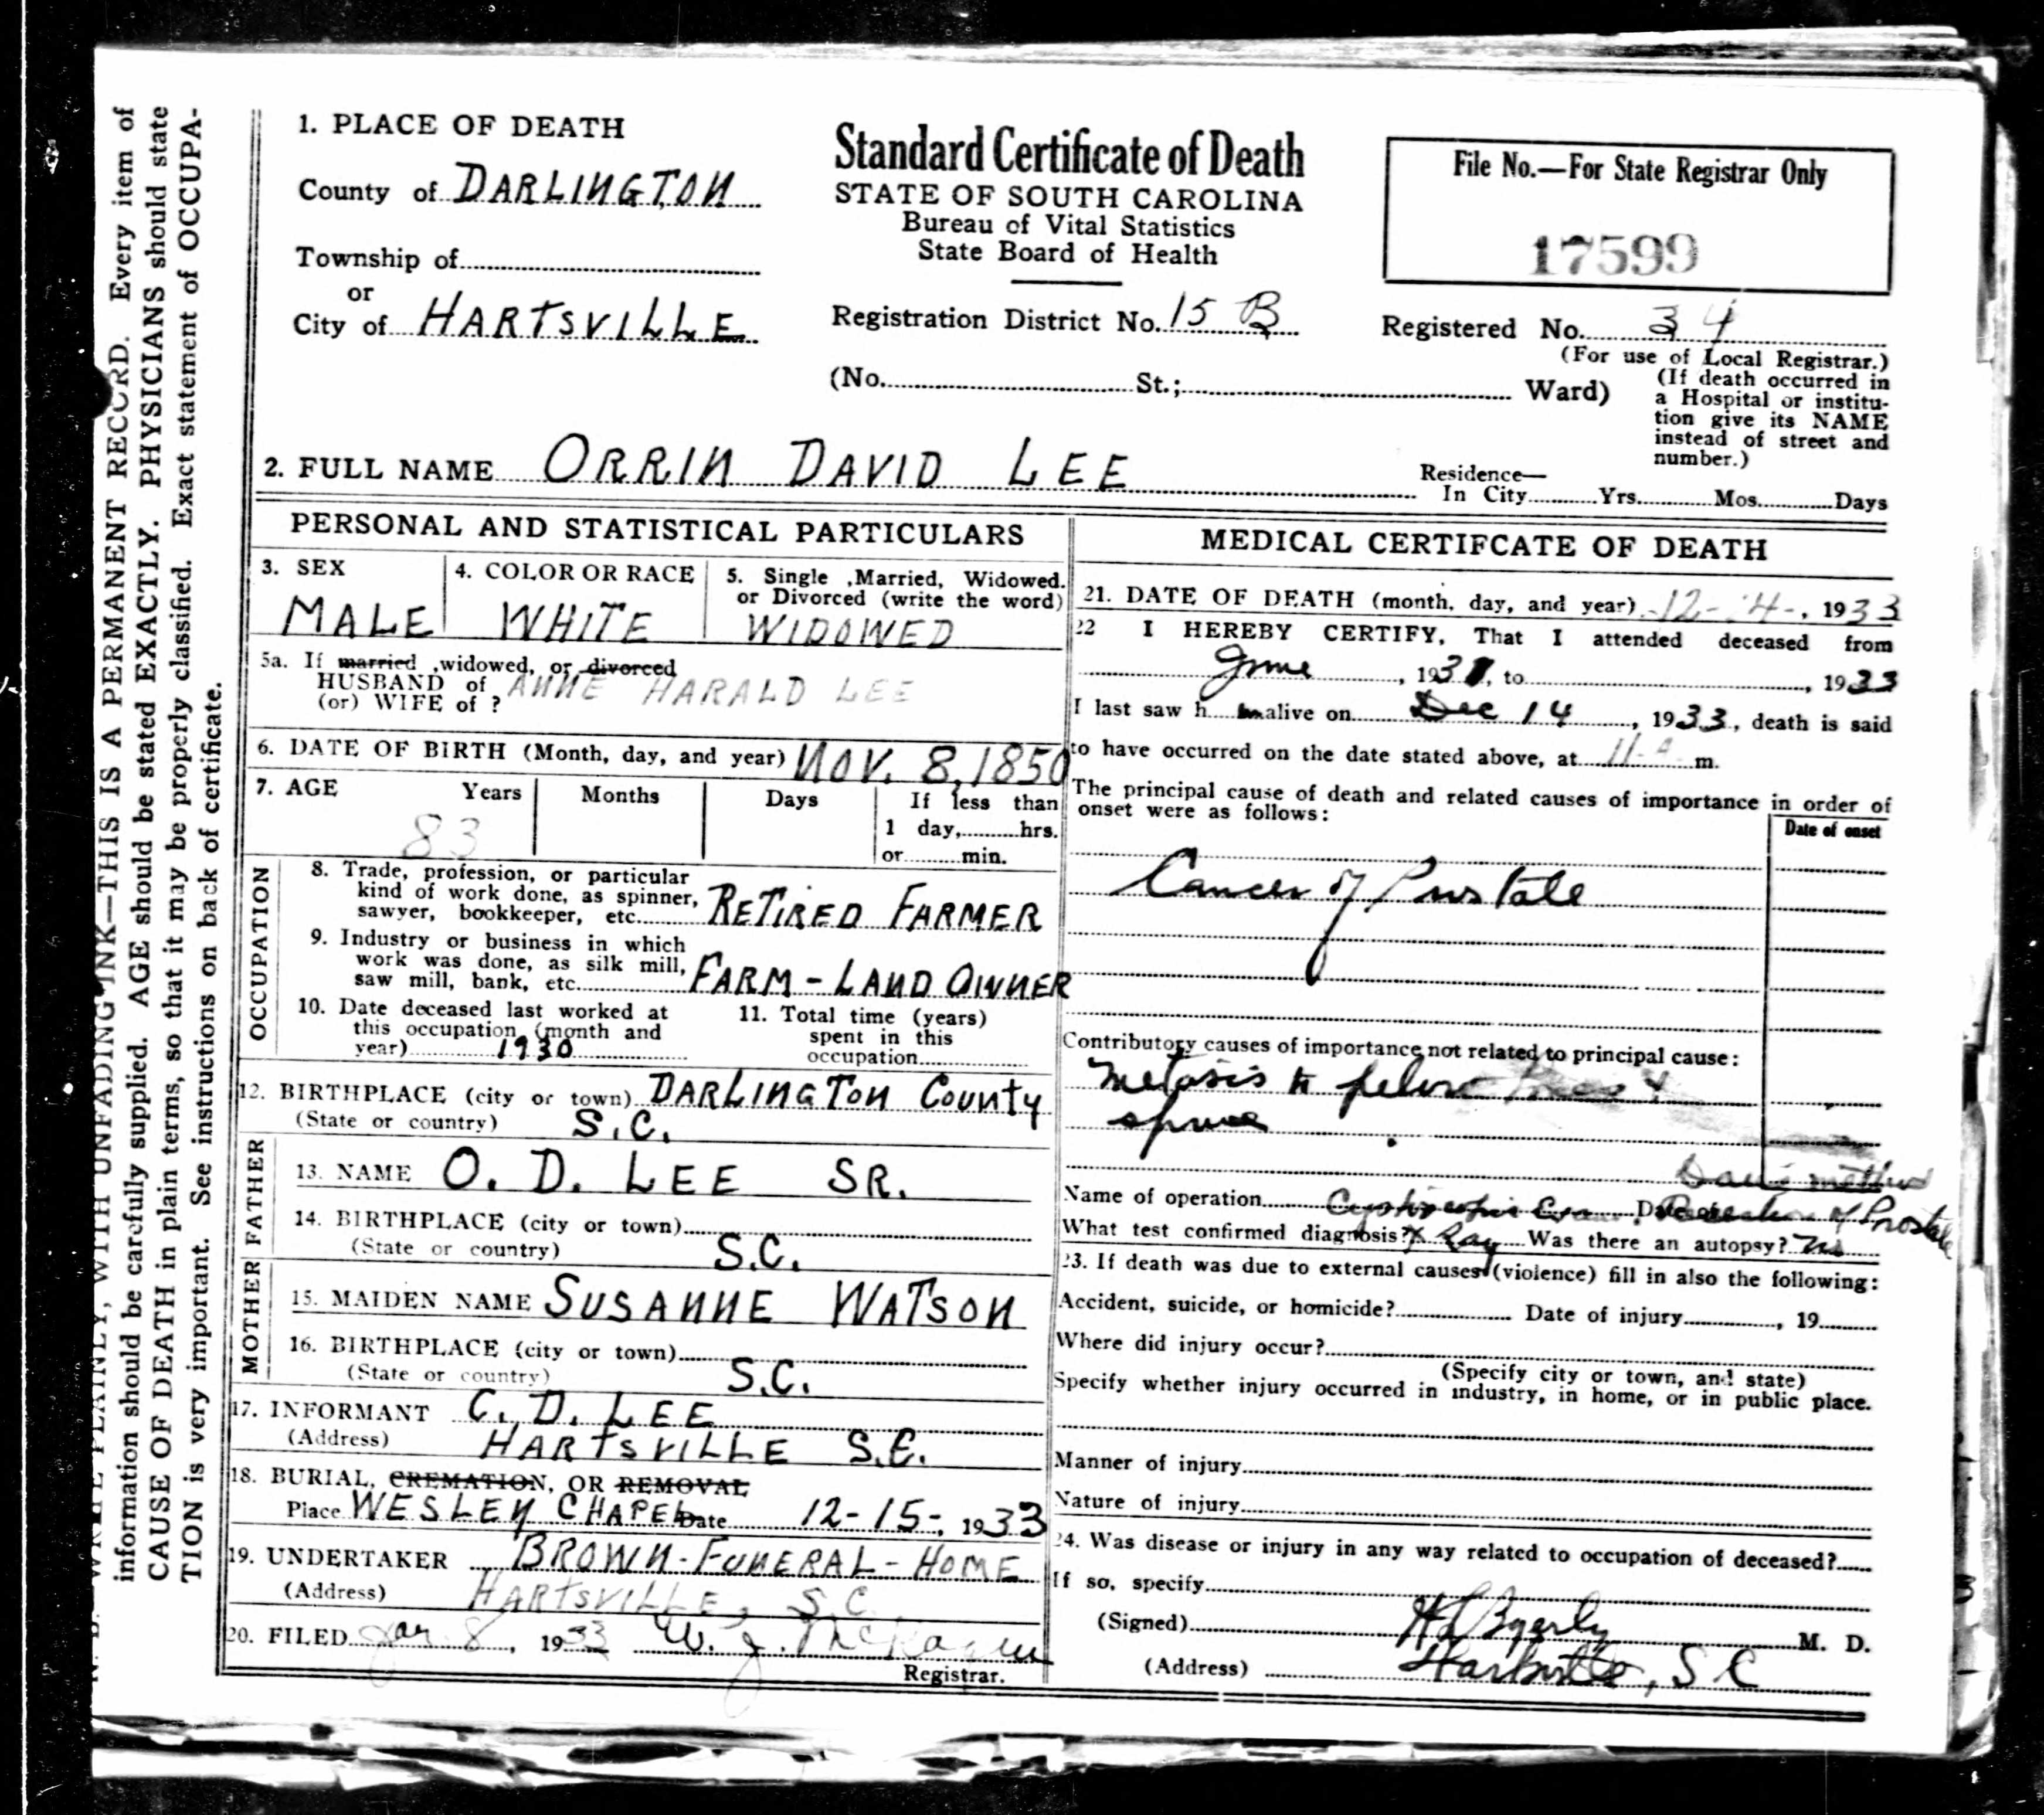 N. B. WRITE PLAINLY, WITH UNFADING INK—THIS IS A PERMANENT RECORD. Every item of
information should be carefully supplied. AGE should be stated EXACTLY. PHYSICIANS should state
CAUSE OF DEATH in plain terms, so that it may be properly classified. Exact statement of OCCUPA-
TION is very important. See instructions on back of certificate.
1. PLACE OF DEATH
County of DARLINGTON
Township of
or
City of HARTSVILLE
Standard Certificate of Death
STATE OF SOUTH CAROLINA
Bureau of Vital Statistics
State Board of Health
Registration District No. 15 B
(No. St.; Ward)
File No.—For State Registrar Only
17599
Registered No. 34
(For use of Local Registrar.)
(If death occurred in
a Hospital or institu-
tion give its NAME
instead of street and
number.)
2. FULL NAME ORRIN DAVID LEE
Residence—
In City Yrs. Mos. Days
PERSONAL AND STATISTICAL PARTICULARS
3. SEX
MALE
4. COLOR OR RACE
WHITE
5. Single ,Married, Widowed.
or Divorced (write the word)
WIDOWED
5a. If married ,widowed, or divorced
HUSBAND of ANNE HARALD LEE
(or) WIFE of ?
6. DATE OF BIRTH (Month, day, and year) NOV. 8, 1850
7. AGE Years Months Days If less than
83 1 day, hrs.
or min.
OCCUPATION
8. Trade, profession, or particular
kind of work done, as spinner,
sawyer, bookkeeper, etc. RETIRED FARMER
9. Industry or business in which
work was done, as silk mill,
saw mill, bank, etc. FARM - LAND OWNER
10. Date deceased last worked at
this occupation (month and
year) 1930
11. Total time (years)
spent in this
occupation
12. BIRTHPLACE (city or town) DARLINGTON County
(State or country) S.C.
FATHER
13. NAME O. D. LEE SR.
14. BIRTHPLACE (city or town)
(State or country) S.C.
MOTHER
15. MAIDEN NAME SUSANNE WATSON
16. BIRTHPLACE (city or town)
(State or country) S.C.
17. INFORMANT C. D. LEE
(Address) HARTSVILLE S.C.
18. BURIAL, CREMATION, OR REMOVAL
Place WESLEY CHAPEL Date 12-15-, 1933
19. UNDERTAKER BROWN-FUNERAL-HOME
(Address) HARTSVILLE, S.C.
20. FILED Jan 8, 1933 W. J.
Registrar.
MEDICAL CERTIFCATE OF DEATH
21. DATE OF DEATH (month, day, and year) 12-14-, 1933
22 I HEREBY CERTIFY, That I attended deceased from
June, 1931, to , 1933
I last saw h im alive on Dec 14, 1933, death is said
to have occurred on the date stated above, at 11 a m.
The principal cause of death and related causes of importance in order of
onset were as follows:
Date of onset
Cancer of Prostate
Contributory causes of importance not related to principal cause:
Metasis to pelvic
spine
Name of operation Date of of Prostate
What test confirmed diagnosis? X Ray Was there an autopsy? No
23. If death was due to external causes (violence) fill in also the following:
Accident, suicide, or homicide? Date of injury , 19
Where did injury occur?
(Specify city or town, and state)
Specify whether injury occurred in industry, in home, or in public place.
Manner of injury
Nature of injury
24. Was disease or injury in any way related to occupation of deceased?
If so, specify
(Signed) Byerly M. D.
(Address) Hartsville, S C